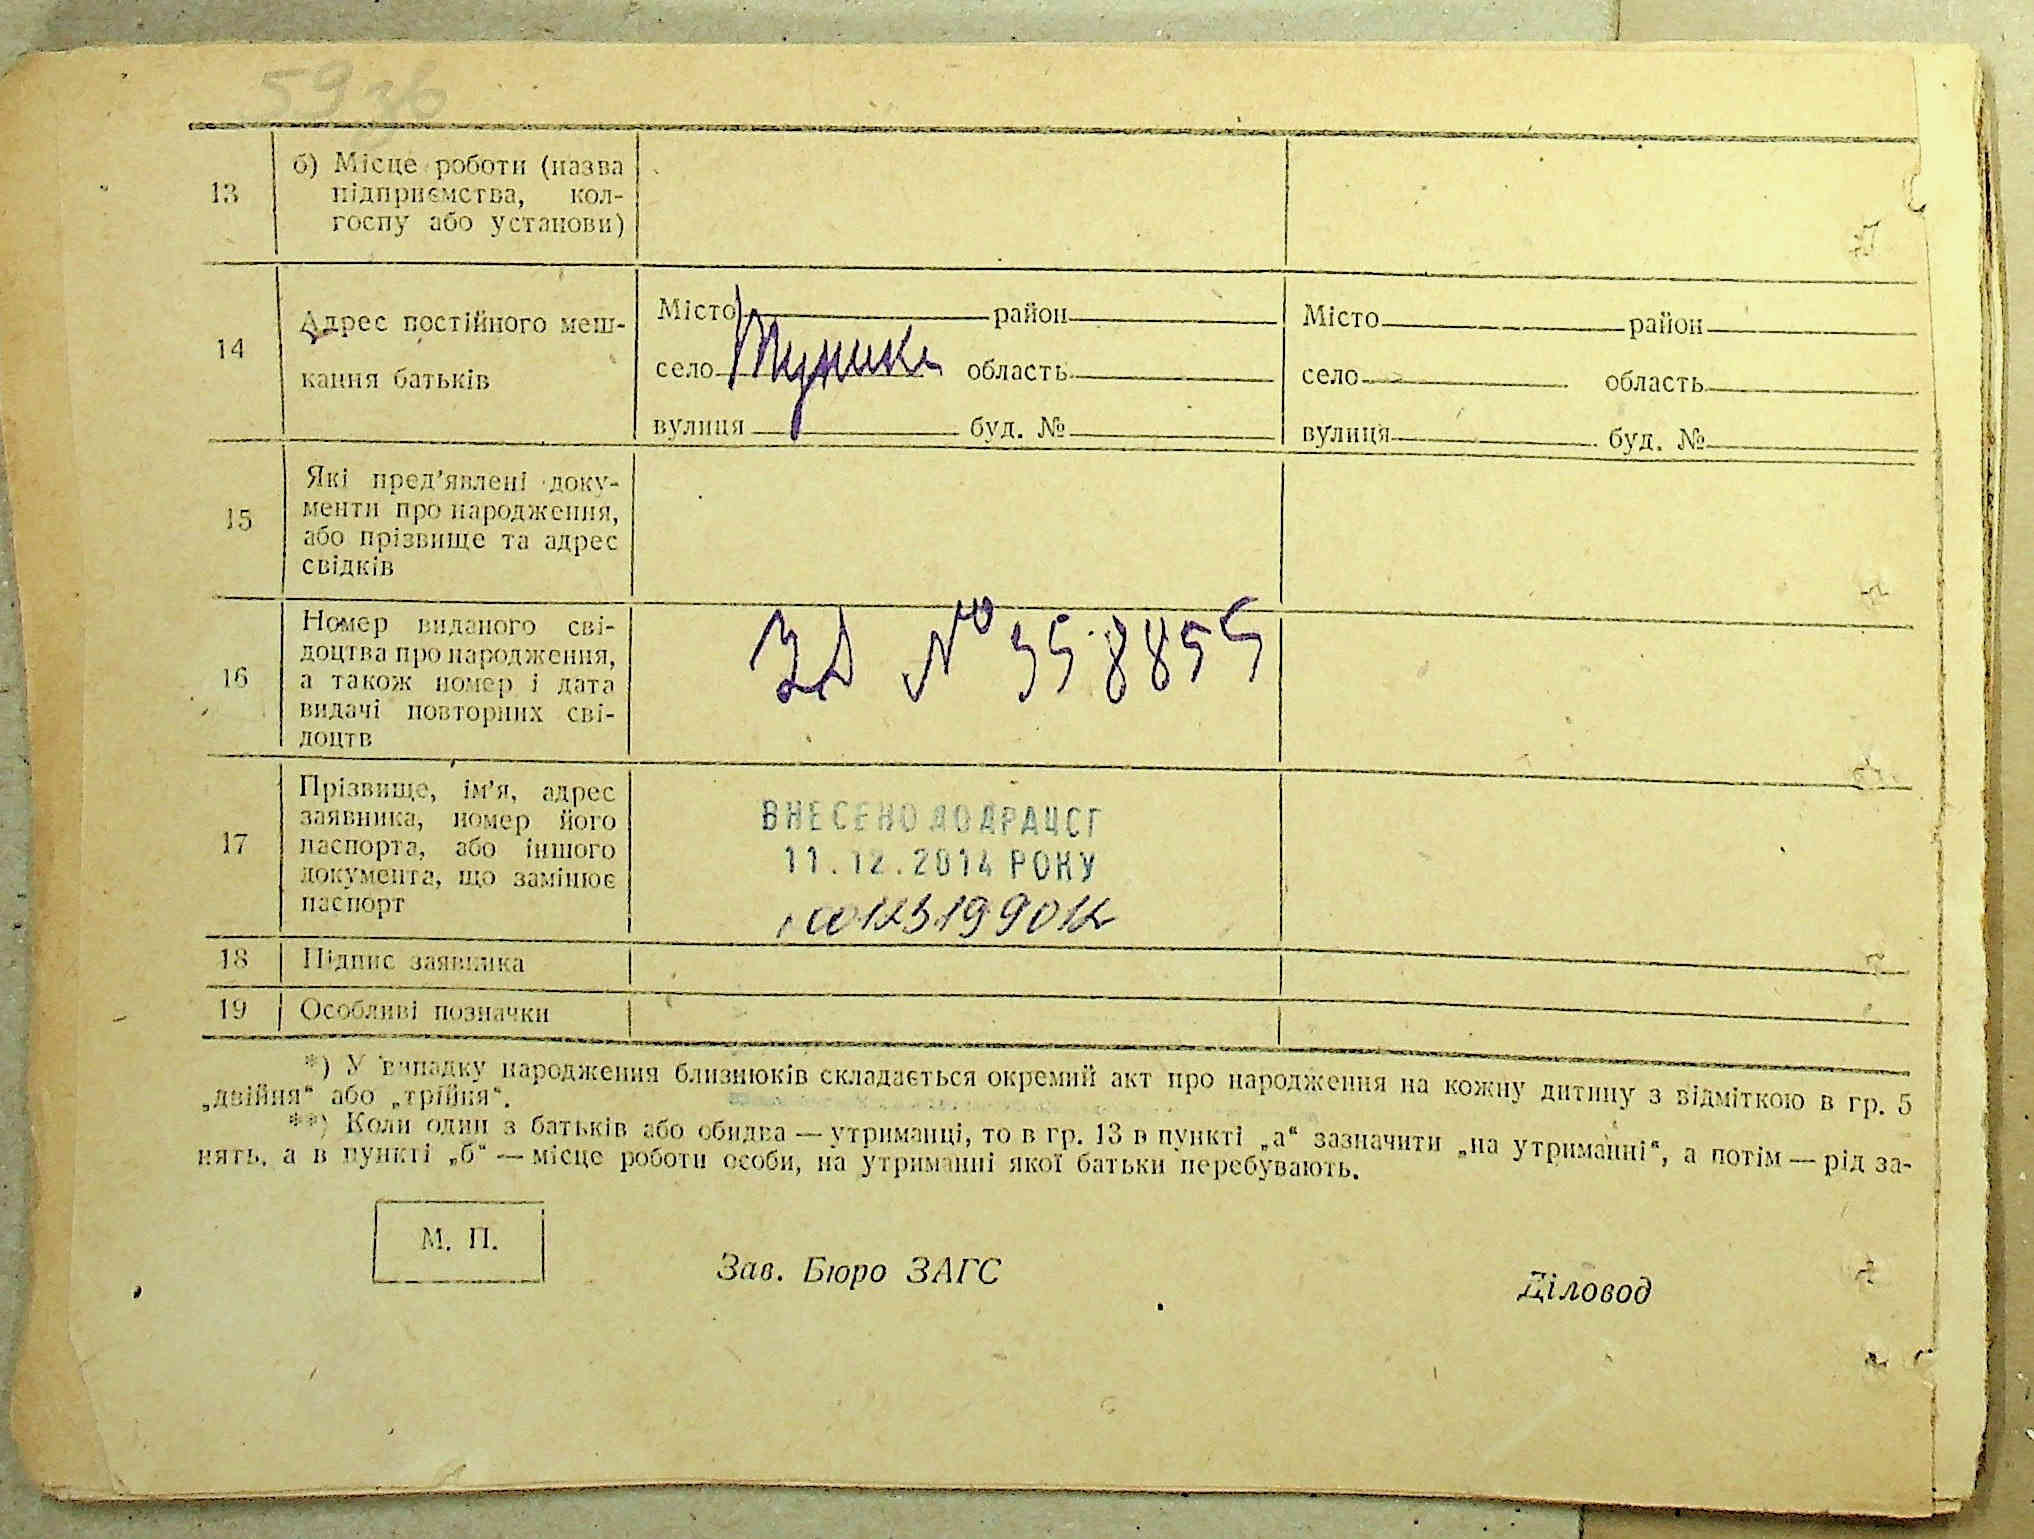 59 зв
13
б) Місце роботи (назва
підприємства, кол-
госпу або установи)
14
Адрес постійного меш-
кання батьків
Місто район
село область
вулиця буд. №
Місто район
село область
вулиця буд. №
15
Які пред'явлені доку-
менти про народження,
або прізвище та адрес
свідків
16
Номер виданого сві-
доцтва про народження,
а також номер і дата
видачі повторних сві-
доцтв
№ 358855
17
Прізвище, ім'я, адрес
заявника, номер його
паспорта, або іншого
документа, що замінює
паспорт
ВНЕСЕНО ДО ДРАЦСГ
11.12.2014 РОКУ
18
Підпис заявника
19
Особливі позначки
*) У випадку народження близнюків складається окремий акт про народження на кожну дитину з відміткою в гр. 5
„двійня“ або „трійня“.
**) Коли один з батьків або обидва — утриманці, то в гр. 13 в пункті „а“ зазначити „на утриманні“, а потім — рід за-
нять, а в пункті „б“ — місце роботи особи, на утриманні якої батьки перебувають.
М. П.
Зав. Бюро ЗАГС
Діловод